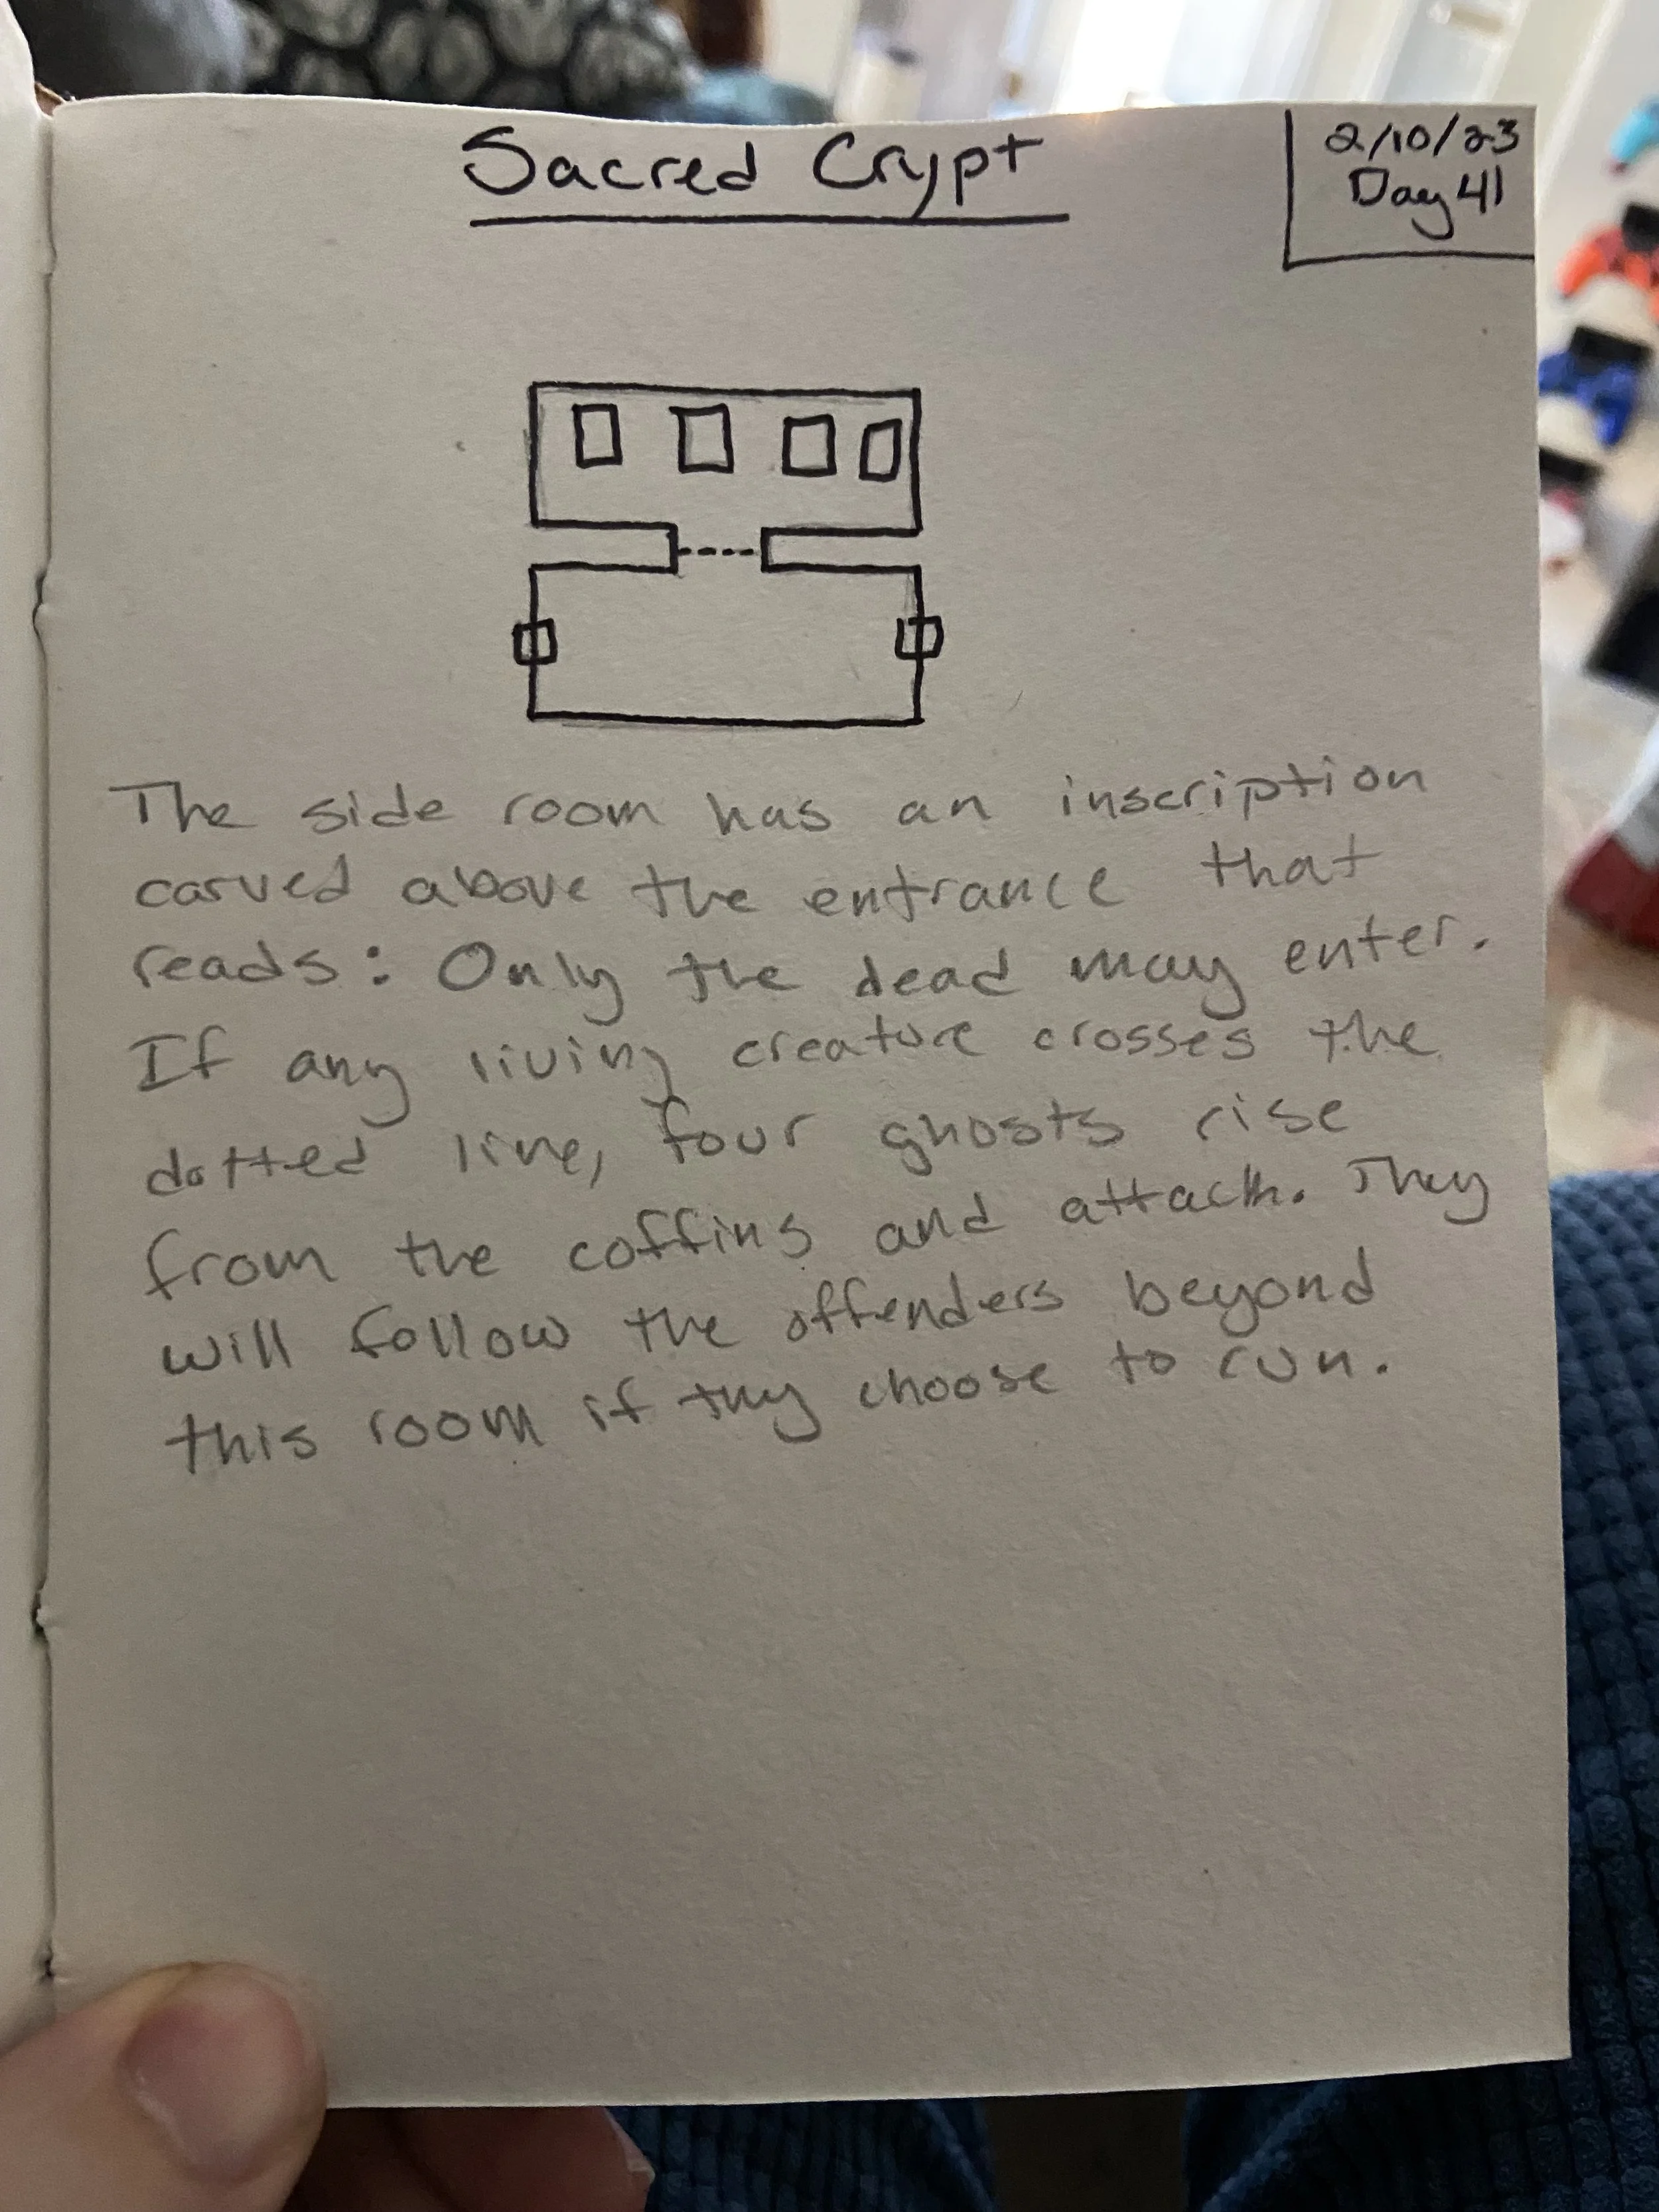 Sacred Crypt
2/10/23
Day 41
The side room has an inscription
carved above the entrance that
reads: Only the dead may enter.
If any living creature crosses the
dotted line, four ghosts rise
from the coffins and attack. They
will follow the offenders beyond
this room if they choose to run.